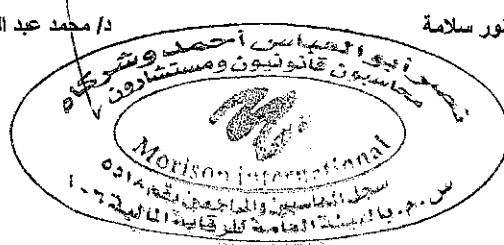 ور سلامة
د/ محمد عبد ال
نصر ابو العباس احمد وشركاه
محاسبون قانونيون ومستشارون
Morison International
سجل المحاسبين والمراجعين رقم ٥٥١٨
س.م. بالهيئة العامة للرقابة المالية ١٠٦